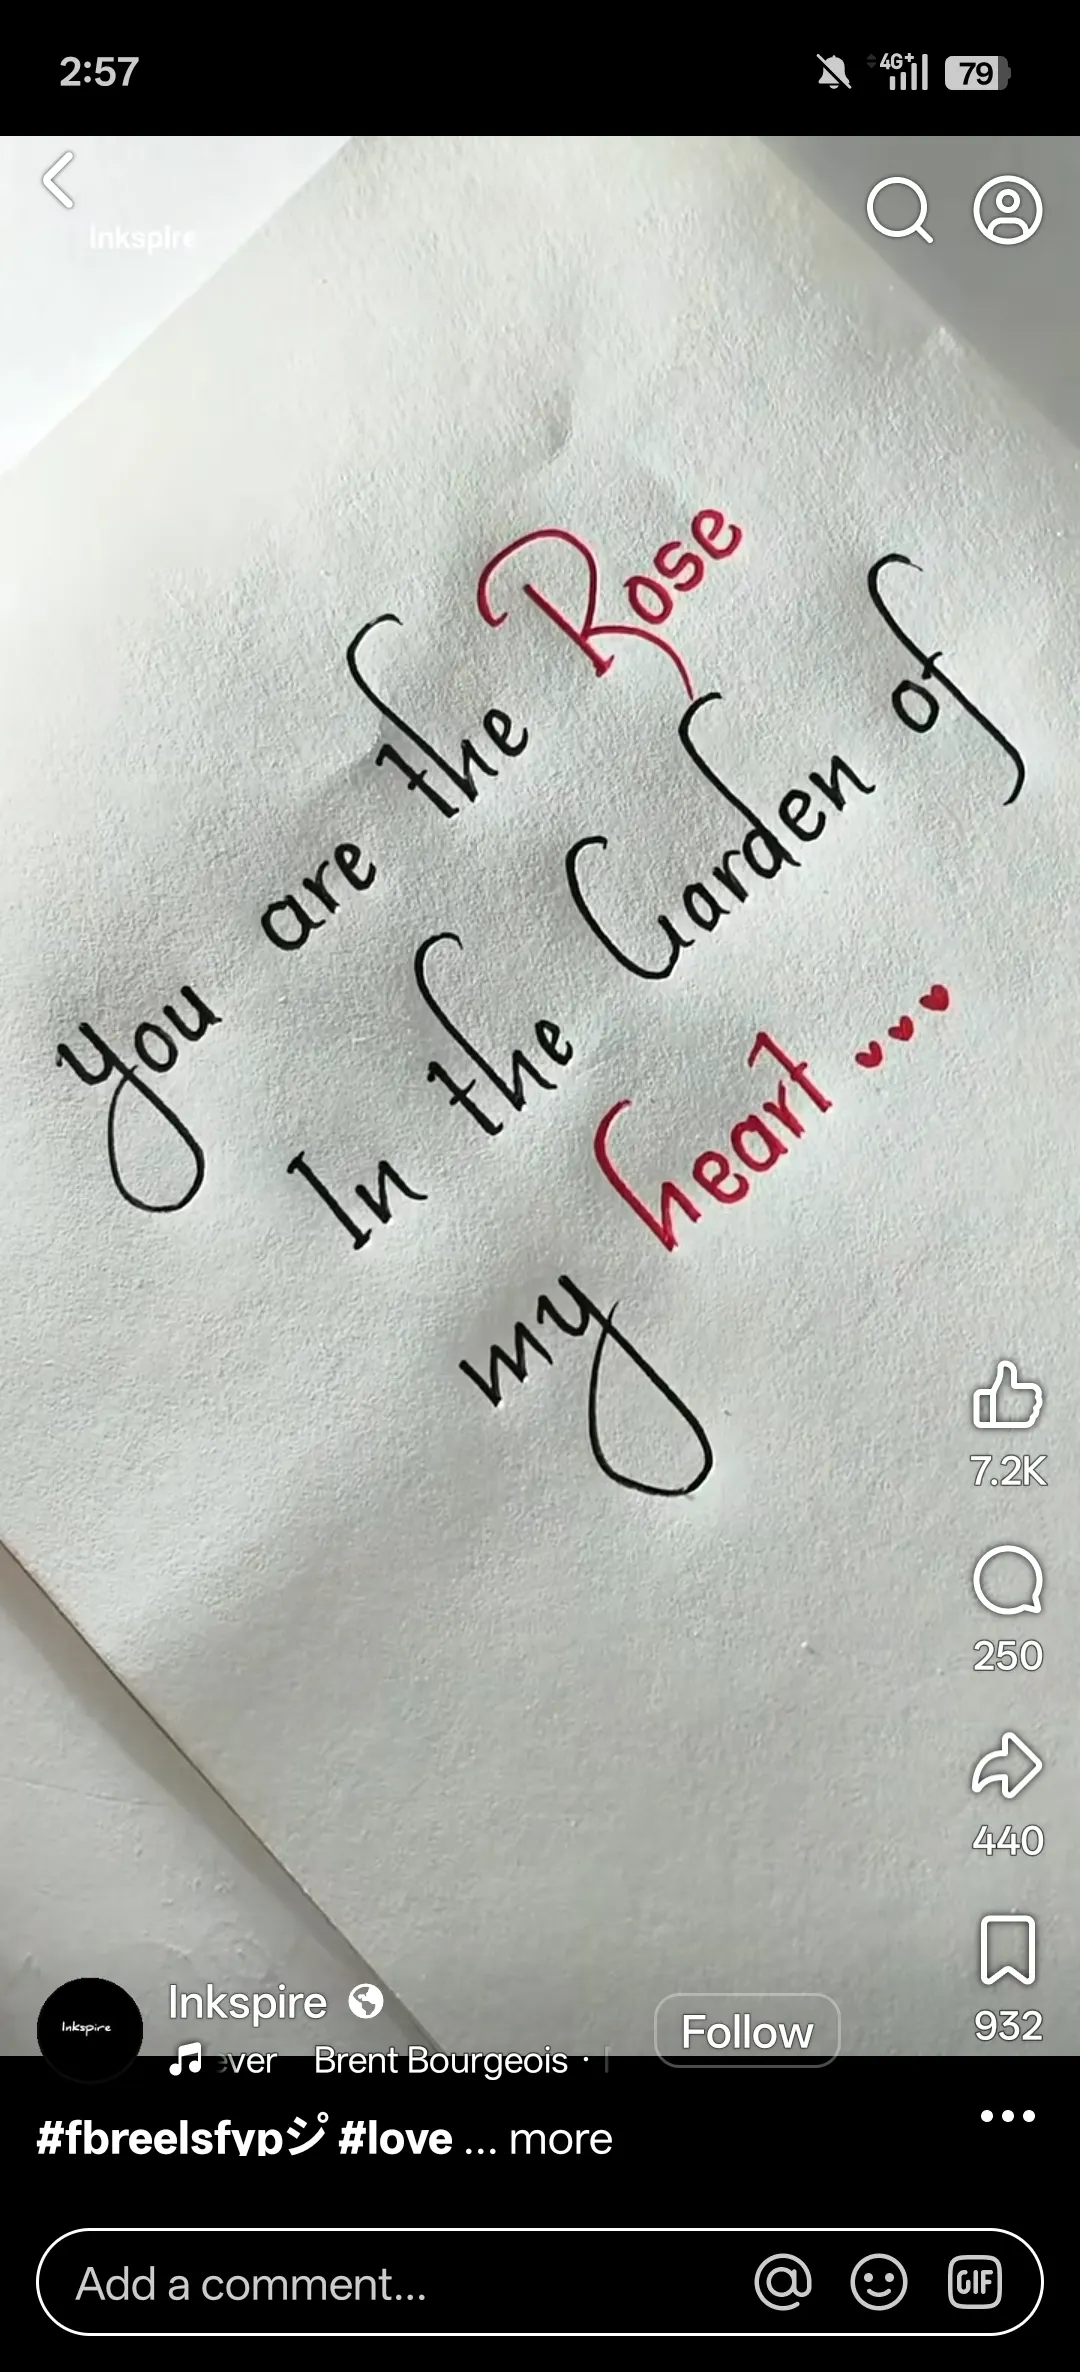 2:57
4G+
79
Inkspire
you are the Rose
In the Garden of
my heart...
7.2K
250
440
932
Inkspire
Inkspire
Follow
ever Brent Bourgeois ·
#fbreelsfypジ #love ... more
Add a comment...
GIF